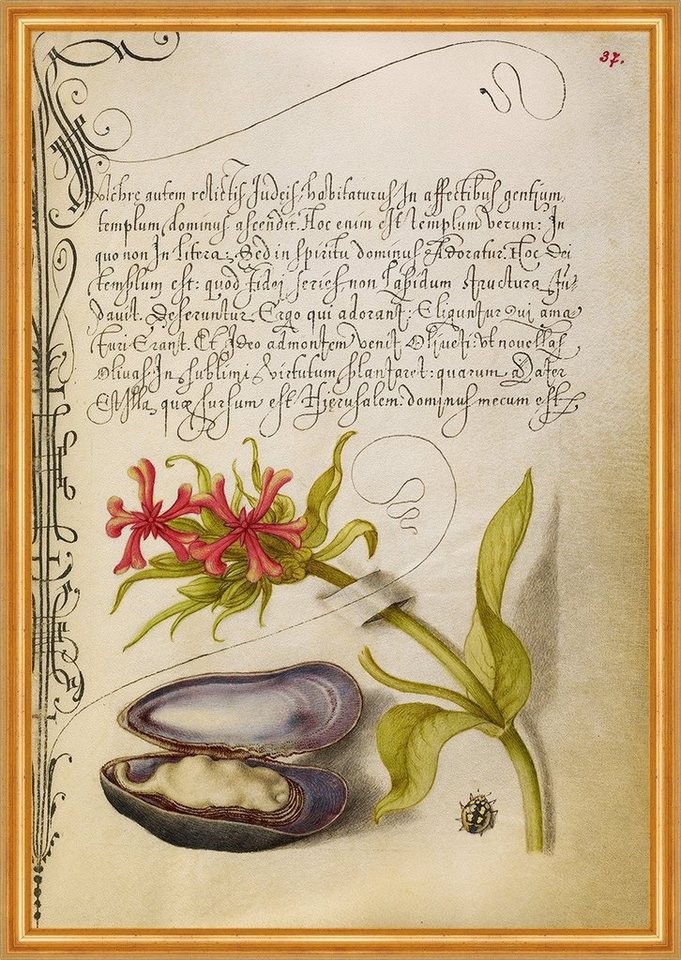 37.
autem relictis Judeis, habitaturus In affectibus gentium,
templum, dominus ascendit. Hoc enim est templum verum: In
quo non In litera, Sed in spiritu dominus Adoratur. Hoc Dei
templum est: quod fidei series non lapidum structura fun-
davit. Deseruntur Ergo qui adorant: Eliguntur qui ama
turi Erant. Et Ideo ad montem venit Oliueti: ut novellas
Olivas In sublimi virtutum plantaret: quarum Mater
Est Illa quæ sursum est Hierusalem: dominus mecum est